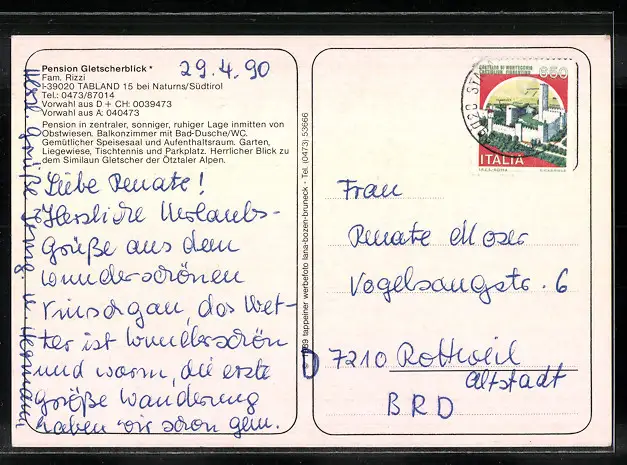 Pension Gletscherblick *
Fam. Rizzi
I-39020 TABLAND 15 bei Naturns/Südtirol
Tel.: 0473/87014
Vorwahl aus D + CH: 0039473
Vorwahl aus A: 040473
Pension in zentraler, sonniger, ruhiger Lage inmitten von
Obstwiesen. Balkonzimmer mit Bad-Dusche/WC.
Gemütlicher Speisesaal und Aufenthaltsraum. Garten,
Liegewiese, Tischtennis und Parkplatz. Herrlicher Blick zu
dem Similaun Gletscher der Ötztaler Alpen.
29.4.90
Liebe Renate!
Herzliche Urlaubs-
grüße aus dem
wunderschönen
Vinschgau, das Wet-
ter ist wunderschön
und warm, die erste
größe Wanderung
haben wir schon gem.
Herzl. Grüße
u. Hermann
tappeiner werbefoto lana-bozen-bruneck - Tel. (0473) 53666
CASTELLO DI MONTECCHIO
CASTIGLION FIORENTINO
650
ITALIA
I.P.Z.S. ROMA
Frau
Renate Moser
Vogelsangstr. 6
D 7210 Rottweil
Altstadt
BRD